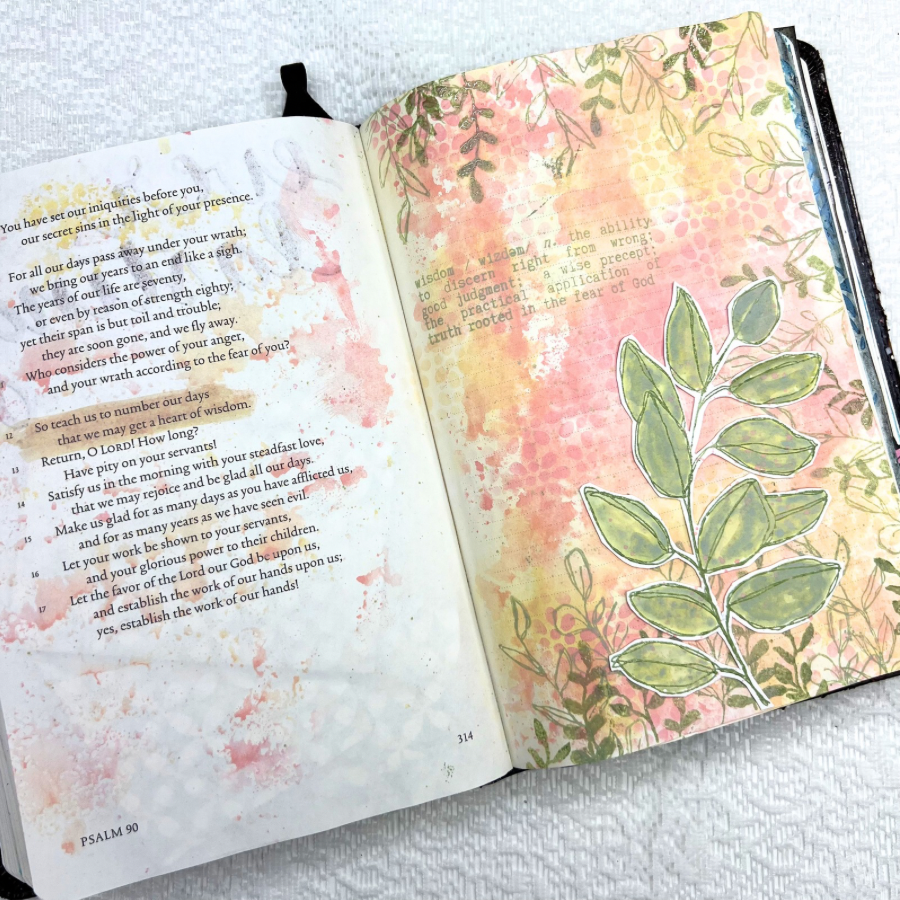 You have set our iniquities before you,
our secret sins in the light of your presence.
For all our days pass away under your wrath;
we bring our years to an end like a sigh.
The years of our life are seventy,
or even by reason of strength eighty;
yet their span is but toil and trouble;
they are soon gone, and we fly away.
Who considers the power of your anger,
and your wrath according to the fear of you?
12 So teach us to number our days
that we may get a heart of wisdom.
13 Return, O LORD! How long?
Have pity on your servants!
14 Satisfy us in the morning with your steadfast love,
that we may rejoice and be glad all our days.
15 Make us glad for as many days as you have afflicted us,
and for as many years as we have seen evil.
16 Let your work be shown to your servants,
and your glorious power to their children.
17 Let the favor of the Lord our God be upon us,
and establish the work of our hands upon us;
yes, establish the work of our hands!
314
PSALM 90
wisdom / wizdəm/ n. the ability
to discern right from wrong;
good judgment; a wise precept;
the practical application of
truth rooted in the fear of God